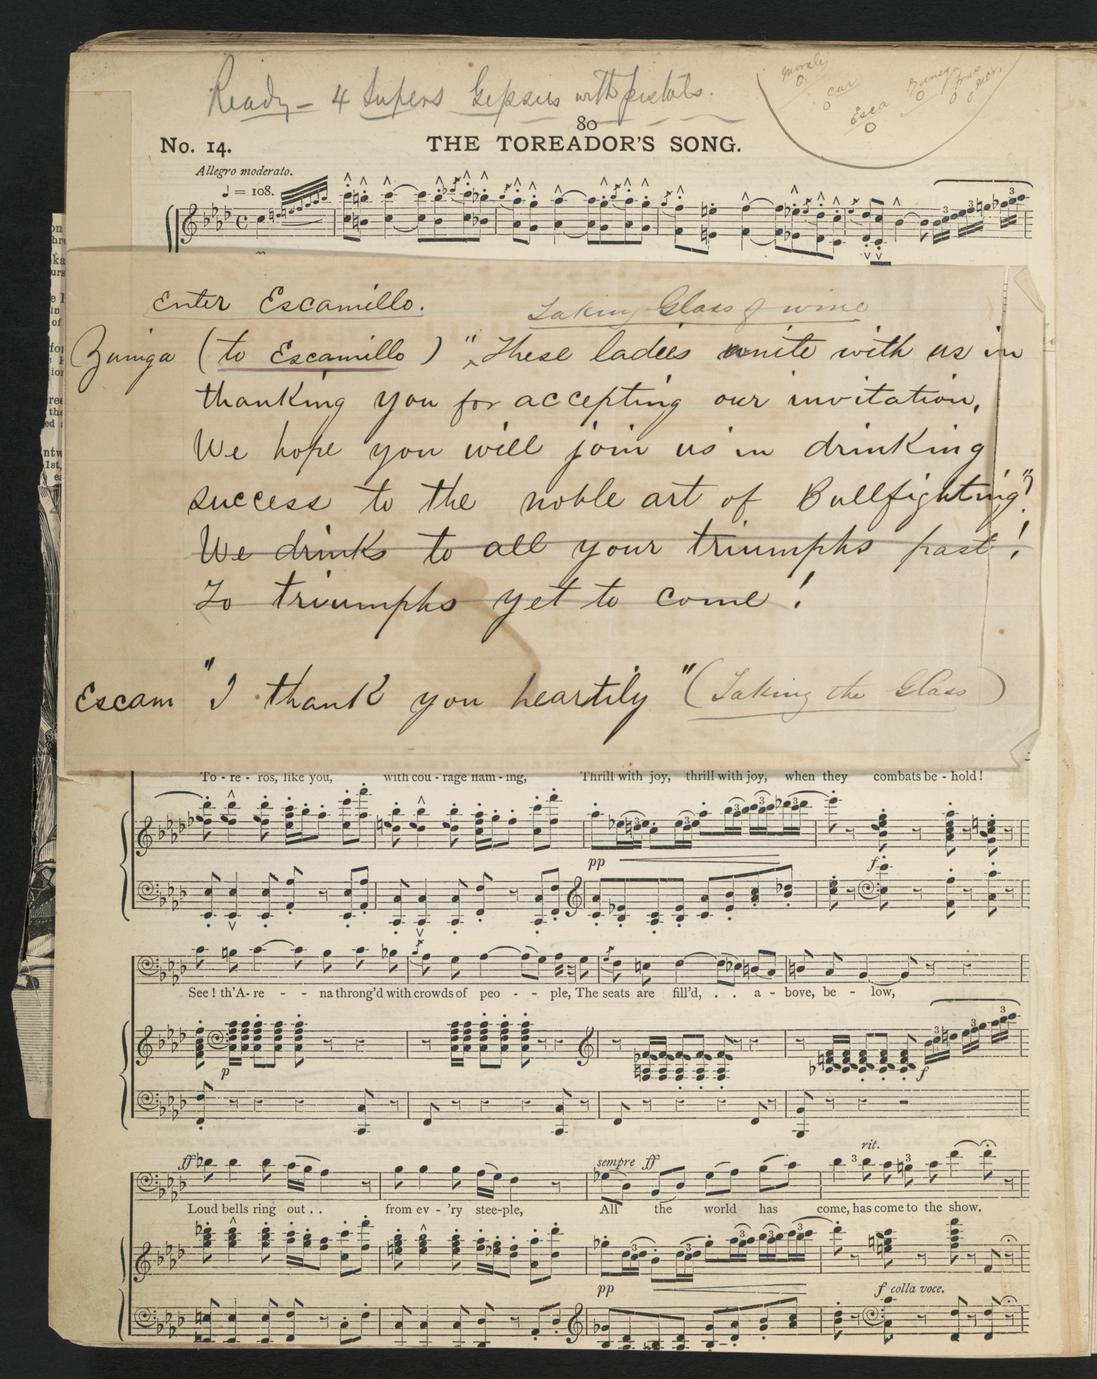 Ready - 4 Supers Gipsies with pistols.
Morales
Car
Esca
Zuniga
Fras
Mer.
80
No. 14.
THE TOREADOR'S SONG.
Allegro moderato.
♩ = 108.
3 3 3
Enter Escamillo.
Taking Glass of wine
Zuniga (to Escamillo) "These ladies unite with us in
thanking you for accepting our invitation,
We hope you will join us in drinking
success to the noble art of Bullfighting"
We drinks to all your triumphs past!
To triumphs yet to come!
Escam "I thank you heartily" (Taking the Glass)
To - re - ros, like you, with cou - rage flam - ing, Thrill with joy, thrill with joy, when they combats be - hold!
3 3 3 3 3
pp f
See! th'A - re - - na throng'd with crowds of peo - - ple, The seats are fill'd, . . a - bove, be - low,
3 3 3
p f
ff sempre ff rit.
3 3
Loud bells ring out . . from ev - 'ry stee-ple, All the world has come, has come to the show.
3 3 3 3 3
pp f colla voce.